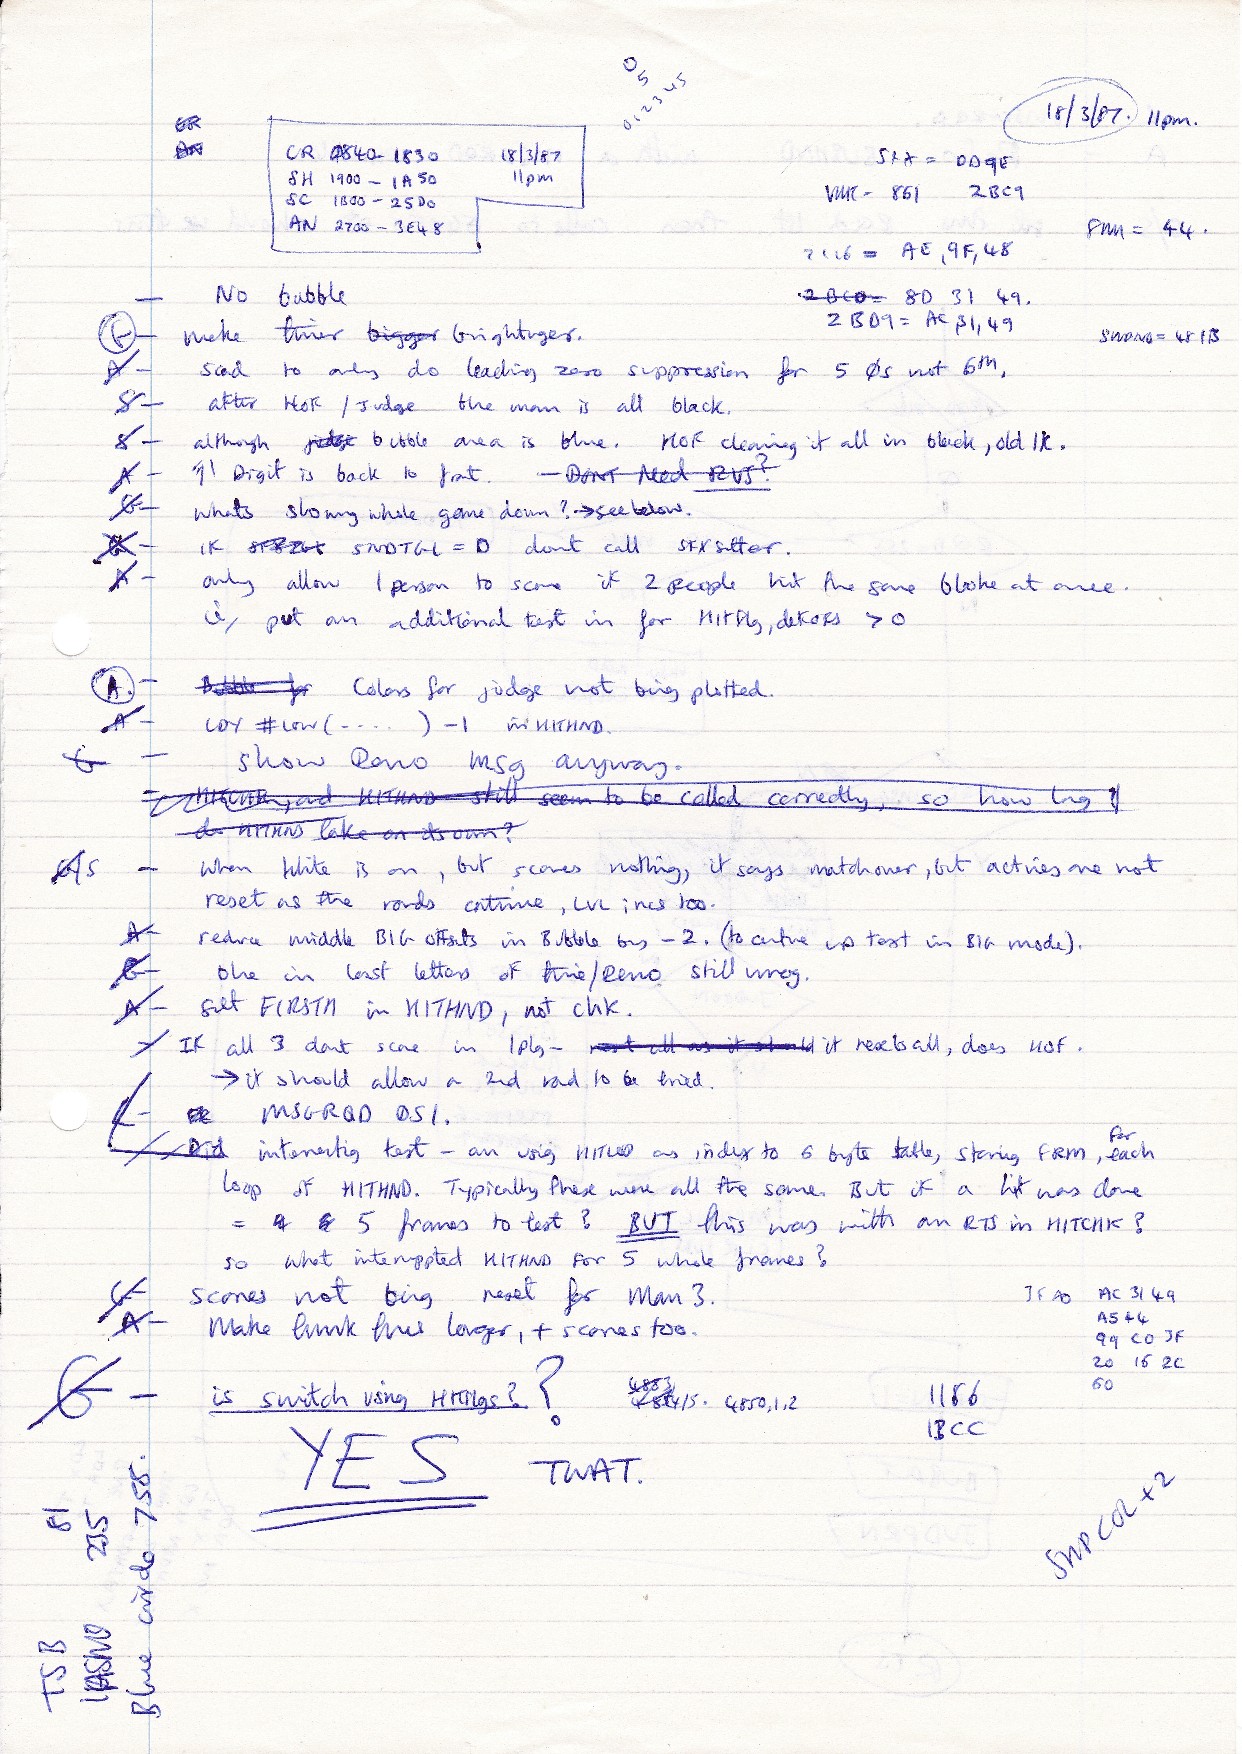 0
5
0 1 2 3 4 5
18/3/87. 11pm.
CR 0840 - 1830 18/3/87
SH 1900 - 1A50 11pm
SC 1B00 - 25D0
AN 2700 - 3E48
= DD9E
861 2BC9
FRM = 44.
= AE, 9F, 48
2BC0 = 8D 31 49.
2BD9 = AC 31, 49
SNDNO = 481B
- No bubble
make timer bigger brightuger.
A - scad to only do leading zero suppression for 5 0s not 6th.
S - after HOF / Judge the man is all black.
S - although judge bubble area is blue. HOF clearing it all in black, old 1k.
A - 1 Digit is back to front. - Dont Need RVS?
G - whats slowing whole game down? → see below.
G - if SNDTGL = 0 dont call SFXsetter.
A - only allow 1 person to score if 2 people hit the same bloke at once.
ie, put an additional test in for HITFlg, > 0
A. - Bubble for Colors for judge not being plotted.
A - LDY #LOW( - - - - ) - 1 in HITHND.
G - show Reno msg anyway.
- and HITHND still seem to be called correctly, so how long
do HITHND take on its own?
G/S - when White is on, but scores nothing, it says matchover, but actives are not
reset as the rounds continue, LVL incs too.
A - reduce middle BIG offsets in Bubble by - 2. (to centre up text in BIG mode).
G - blue in last letters of time/Reno still wrong.
A - set FIRSTH in HITHND, not chk.
If all 3 dont score in 1plg - reset all as it should it resets all, does HOF.
→ it should allow a 2nd round to be tried.
- MSGRQD 051.
Did interesting test - am using as index to 6 byte table, storing FRM, for each
loop of HITHND. Typically these were all the same. But if a hit was done
= 5 frames to test? BUT this was with an RTS in HITCHK?
so what interrupted HITHND for 5 whole frames?
G - scores not being reset for Man 3.
3FA0 AC 31 49
A - Make times longer, + scores too.
A5 44
99 C0 3F
20 16 2C
60
G - is switch using HITFlgs? ?
4853
4854/5. 4850,1,2
1156
1BCC
YES TWAT.
SHPCOL + 2
TSB 81
235
Blue circle 755.